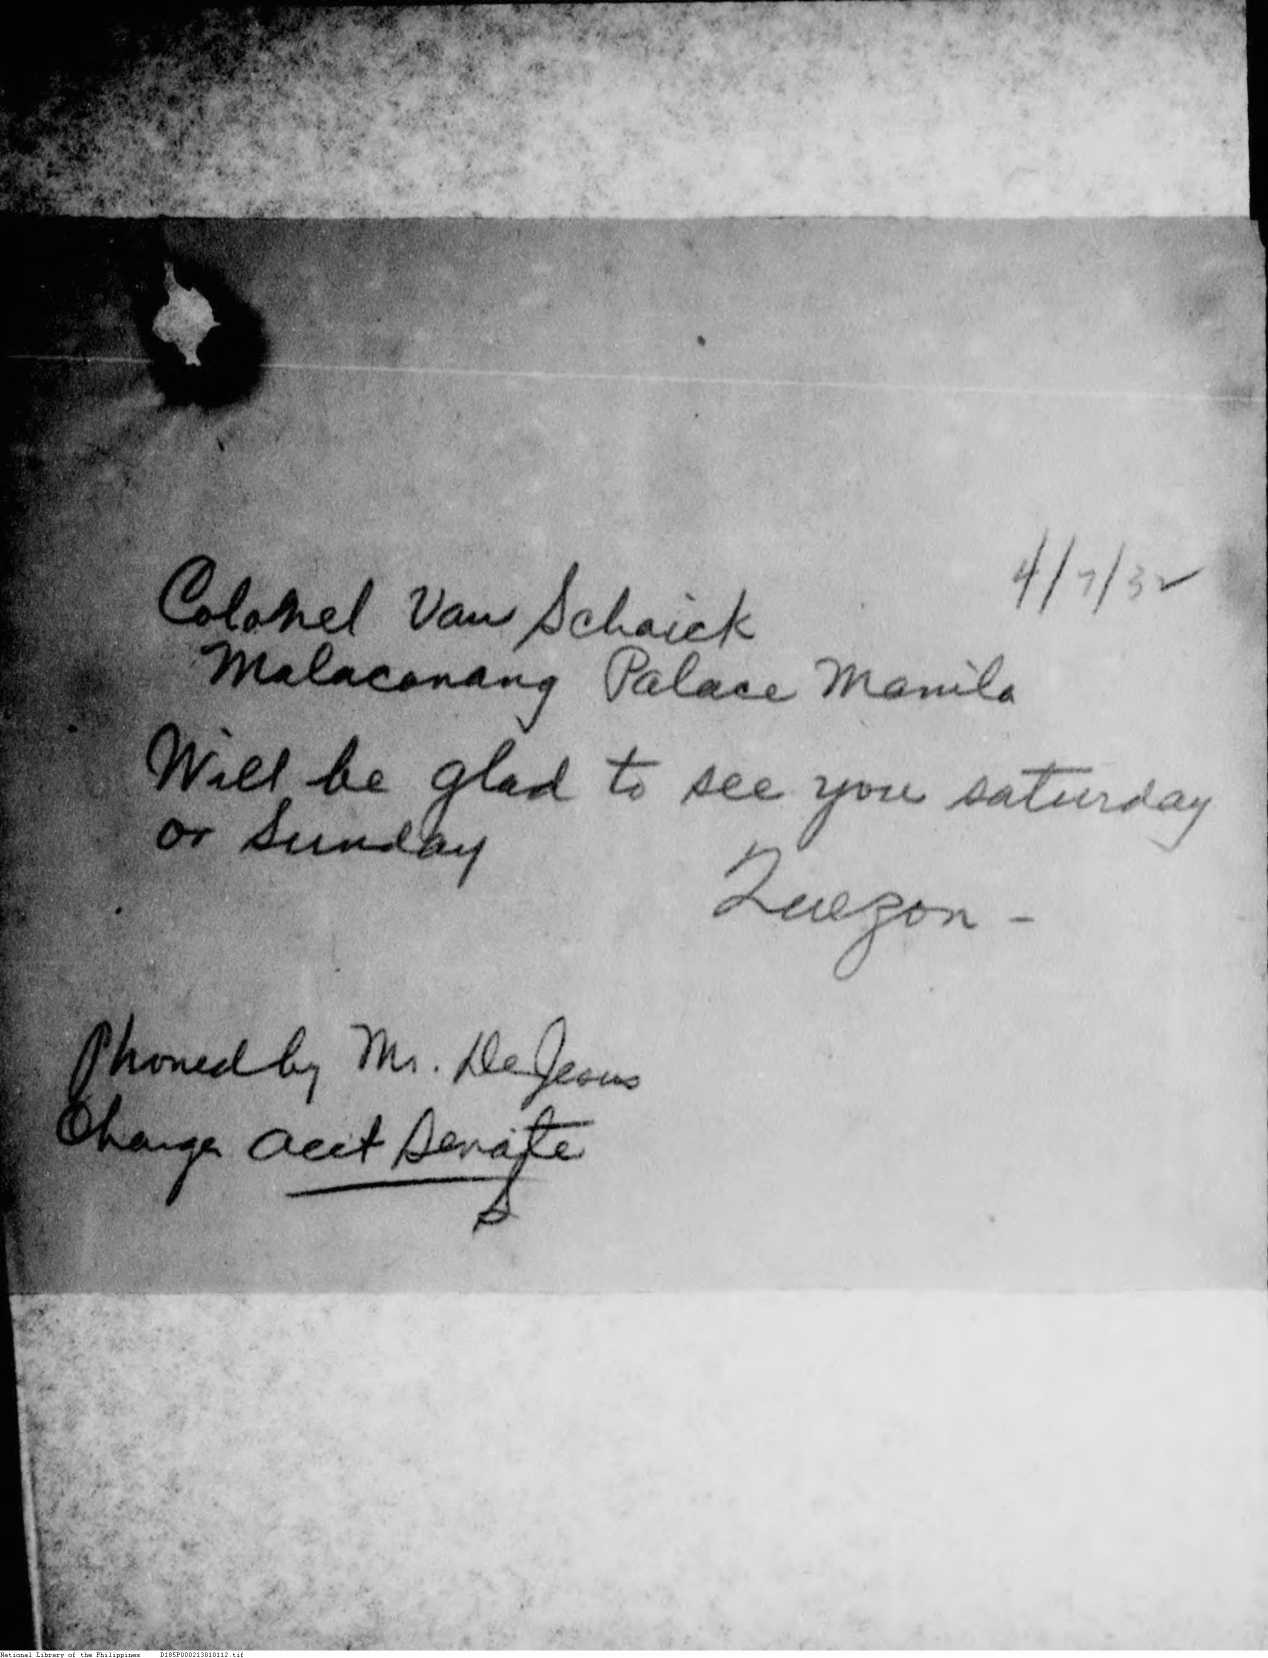 4/7/32
Colonel Van Schaick
Malacanang Palace Manila
Will be glad to see you saturday
or Sunday
Quezon -
Phoned by Mr. De Jesus
Charge acct Senate
S
National Library of the Philippines D185P000213810112.tif